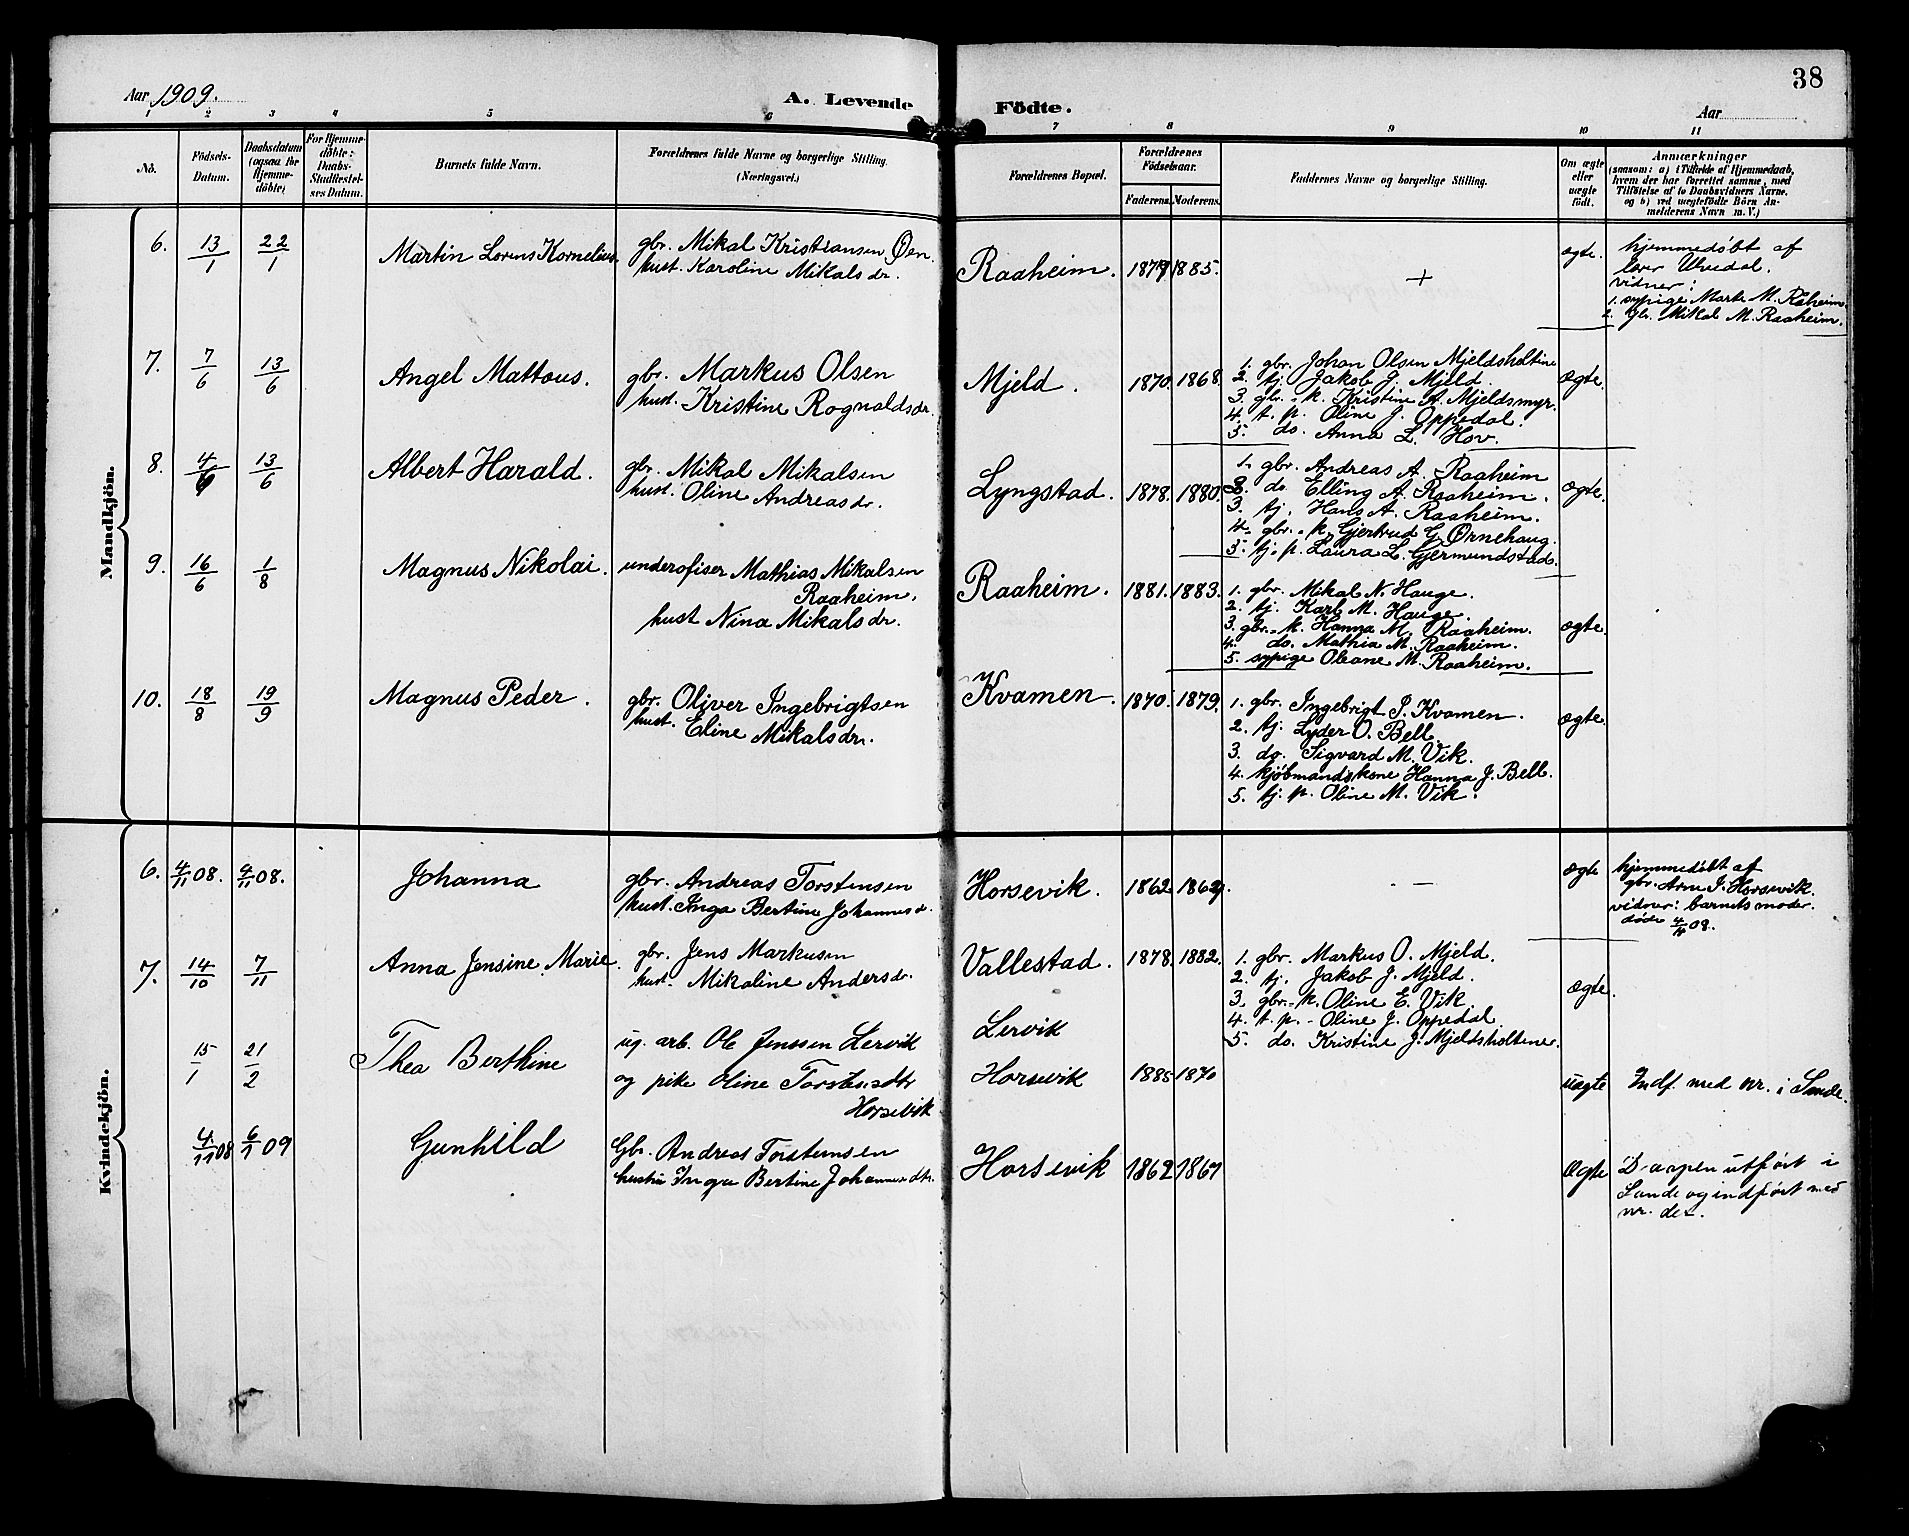 38
Aar 1909.
A. Levende Födte.
Aar
1 2 3 4 5 6 7 8 9 10 11
No.
Födsels-Datum.
Daabsdatum (ogsaa for Hjemme-döbte)
For Hjemme-döbte: Daabs-Stadfæstel-ses Datum.
Barnets fulde Navn.
Forældrenes fulde Navne og borgerlige Stilling. (Næringsvei.)
Forældrenes Bopæl.
Forældrenes Födselsaar.
Faderens. Moderens.
Faddernes Navne og borgerlige Stilling.
Om ægte eller uægte födt.
Anmærkninger
(saasom: a) i Tilfælde af Hjemmedaab,
hvem der har forrettet samme, med
Tilföielse af to Daabsvidners Navne.
og b) ved uægtefödte Börn An-
melderens Navn m. V.)
Mandkjön.
6. 13/1 22/1 Martin Lorens Kornelius. gbr. Mikal Kristiansen Øen.
hust. Karoline Mikalsdr.
Raaheim. 1879 1885. + ægte.
hjemmedøbt af
lærer Ulvedal.
vidner:
1. sypige Marte M. Råheim
2. gbr. Mikal M. Raaheim.
7. 7/6 13/6 Angel Mattous. gbr. Markus Olsen
hust. Kristine Rognaldsdr.
Mjeld. 1870. 1868. ægte.
1. gbr. Johan Olsen Mjeldsholtine
2. tj. Jakob J. Mjeld.
3. gbr.-k. Kristine A. Mjeldsmyr.
4. t. p. Oline J. Oppedal.
5. do. Anna L. Hov.
8. 4/6 13/6 Albert Harald. gbr. Mikal Mikalsen
hust. Oline Andreasdr.
Lyngstad. 1878. 1880. ægte.
1. gbr. Andreas A. Raaheim
2. do. Elling A. Raaheim.
3. tj. Hans A. Raaheim.
4. gbr.-k. Gjertrud G. Ørnehaug.
5. tj. p. Laura L. Gjermundstad.
9. 16/6 1/8 Magnus Nikolai. underofiser Mathias Mikalsen
Raaheim.
hust Nina Mikalsdr.
Raaheim. 1881. 1883. ægte.
1. gbr. Mikal N. Hauge.
2. tj. Karl M. Hauge.
3. gbr.-k. Hanna M. Raaheim.
4. do. Mathia M. Raaheim.
5. sypige Oleane M. Raaheim.
10. 18/8 19/9 Magnus Peder. gbr. Oliver Ingebrigtsen
hust. Eline Mikalsdr.
Kvamen. 1870. 1879. ægte.
1. gbr. Ingebrigt P. Kvamen.
2. tj. Lyder O. Bell.
3. do. Sigvard M. Vik.
4. kjøbmandskone Hanna J. Bell.
5. tj. p. Oline M. Vik.
Kvindekjön.
6. 4/11 08. 4/11 08. Johanna gbr. Andreas Torstensen
hust. Inga Bertine Johannesdr.
Horsevik. 1862 1867. — ægte
hjemmedøbt af
gbr. Arne J. Horsevik.
vidner: barnets moder.
døde 4/11 08.
7. 14/10 7/11 Anna Jensine Marie. gbr. Jens Markusen
hust. Mikaline Andersdr.
Vallestad. 1878. 1882. ægte.
1. gbr. Markus O. Mjeld.
2. tj. Jakob J. Mjeld.
3. gbr.-k. Oline E. Vik.
4. t. p. - Oline J. Oppedal
5. do. Kristine J. Mjeldsholtene.
15/1 21/2 Thea Berthine ug. arb. Ole Jenssen Lervik
og pike Oline Torstensdtr
Horsevik
Lervik
Horsevik 1885 1870 uægte Indf. med nr. i Sande.
4/11 08 6/1 09 Gunhild Gbr. Andreas Torstensen
hustru Inga Bertine Johannesdtr.
Horsevik 1862 1867 Ægte
Daapen utført i
Sande og indført med
nr. der.